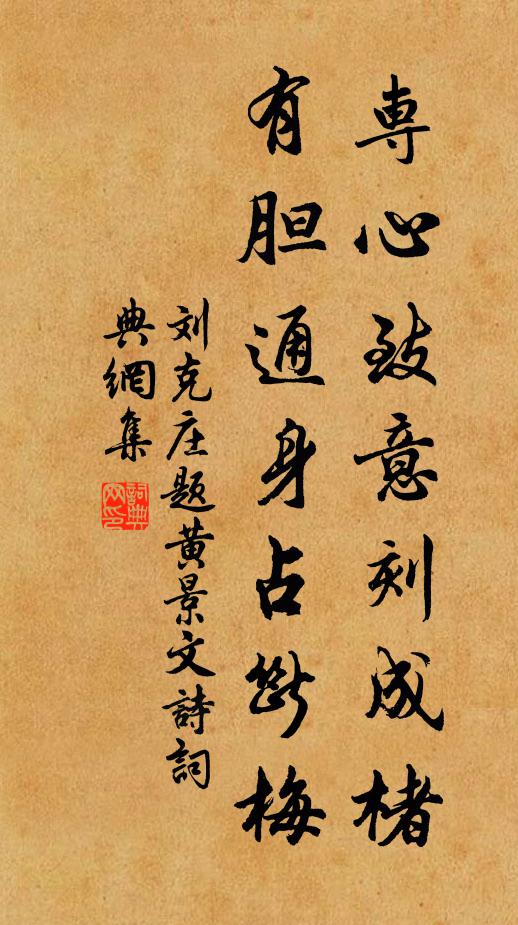 専心致意刻成楮
有胆通身占断梅
刘克庄题黄景文詩詞
典網集
詞典
网印